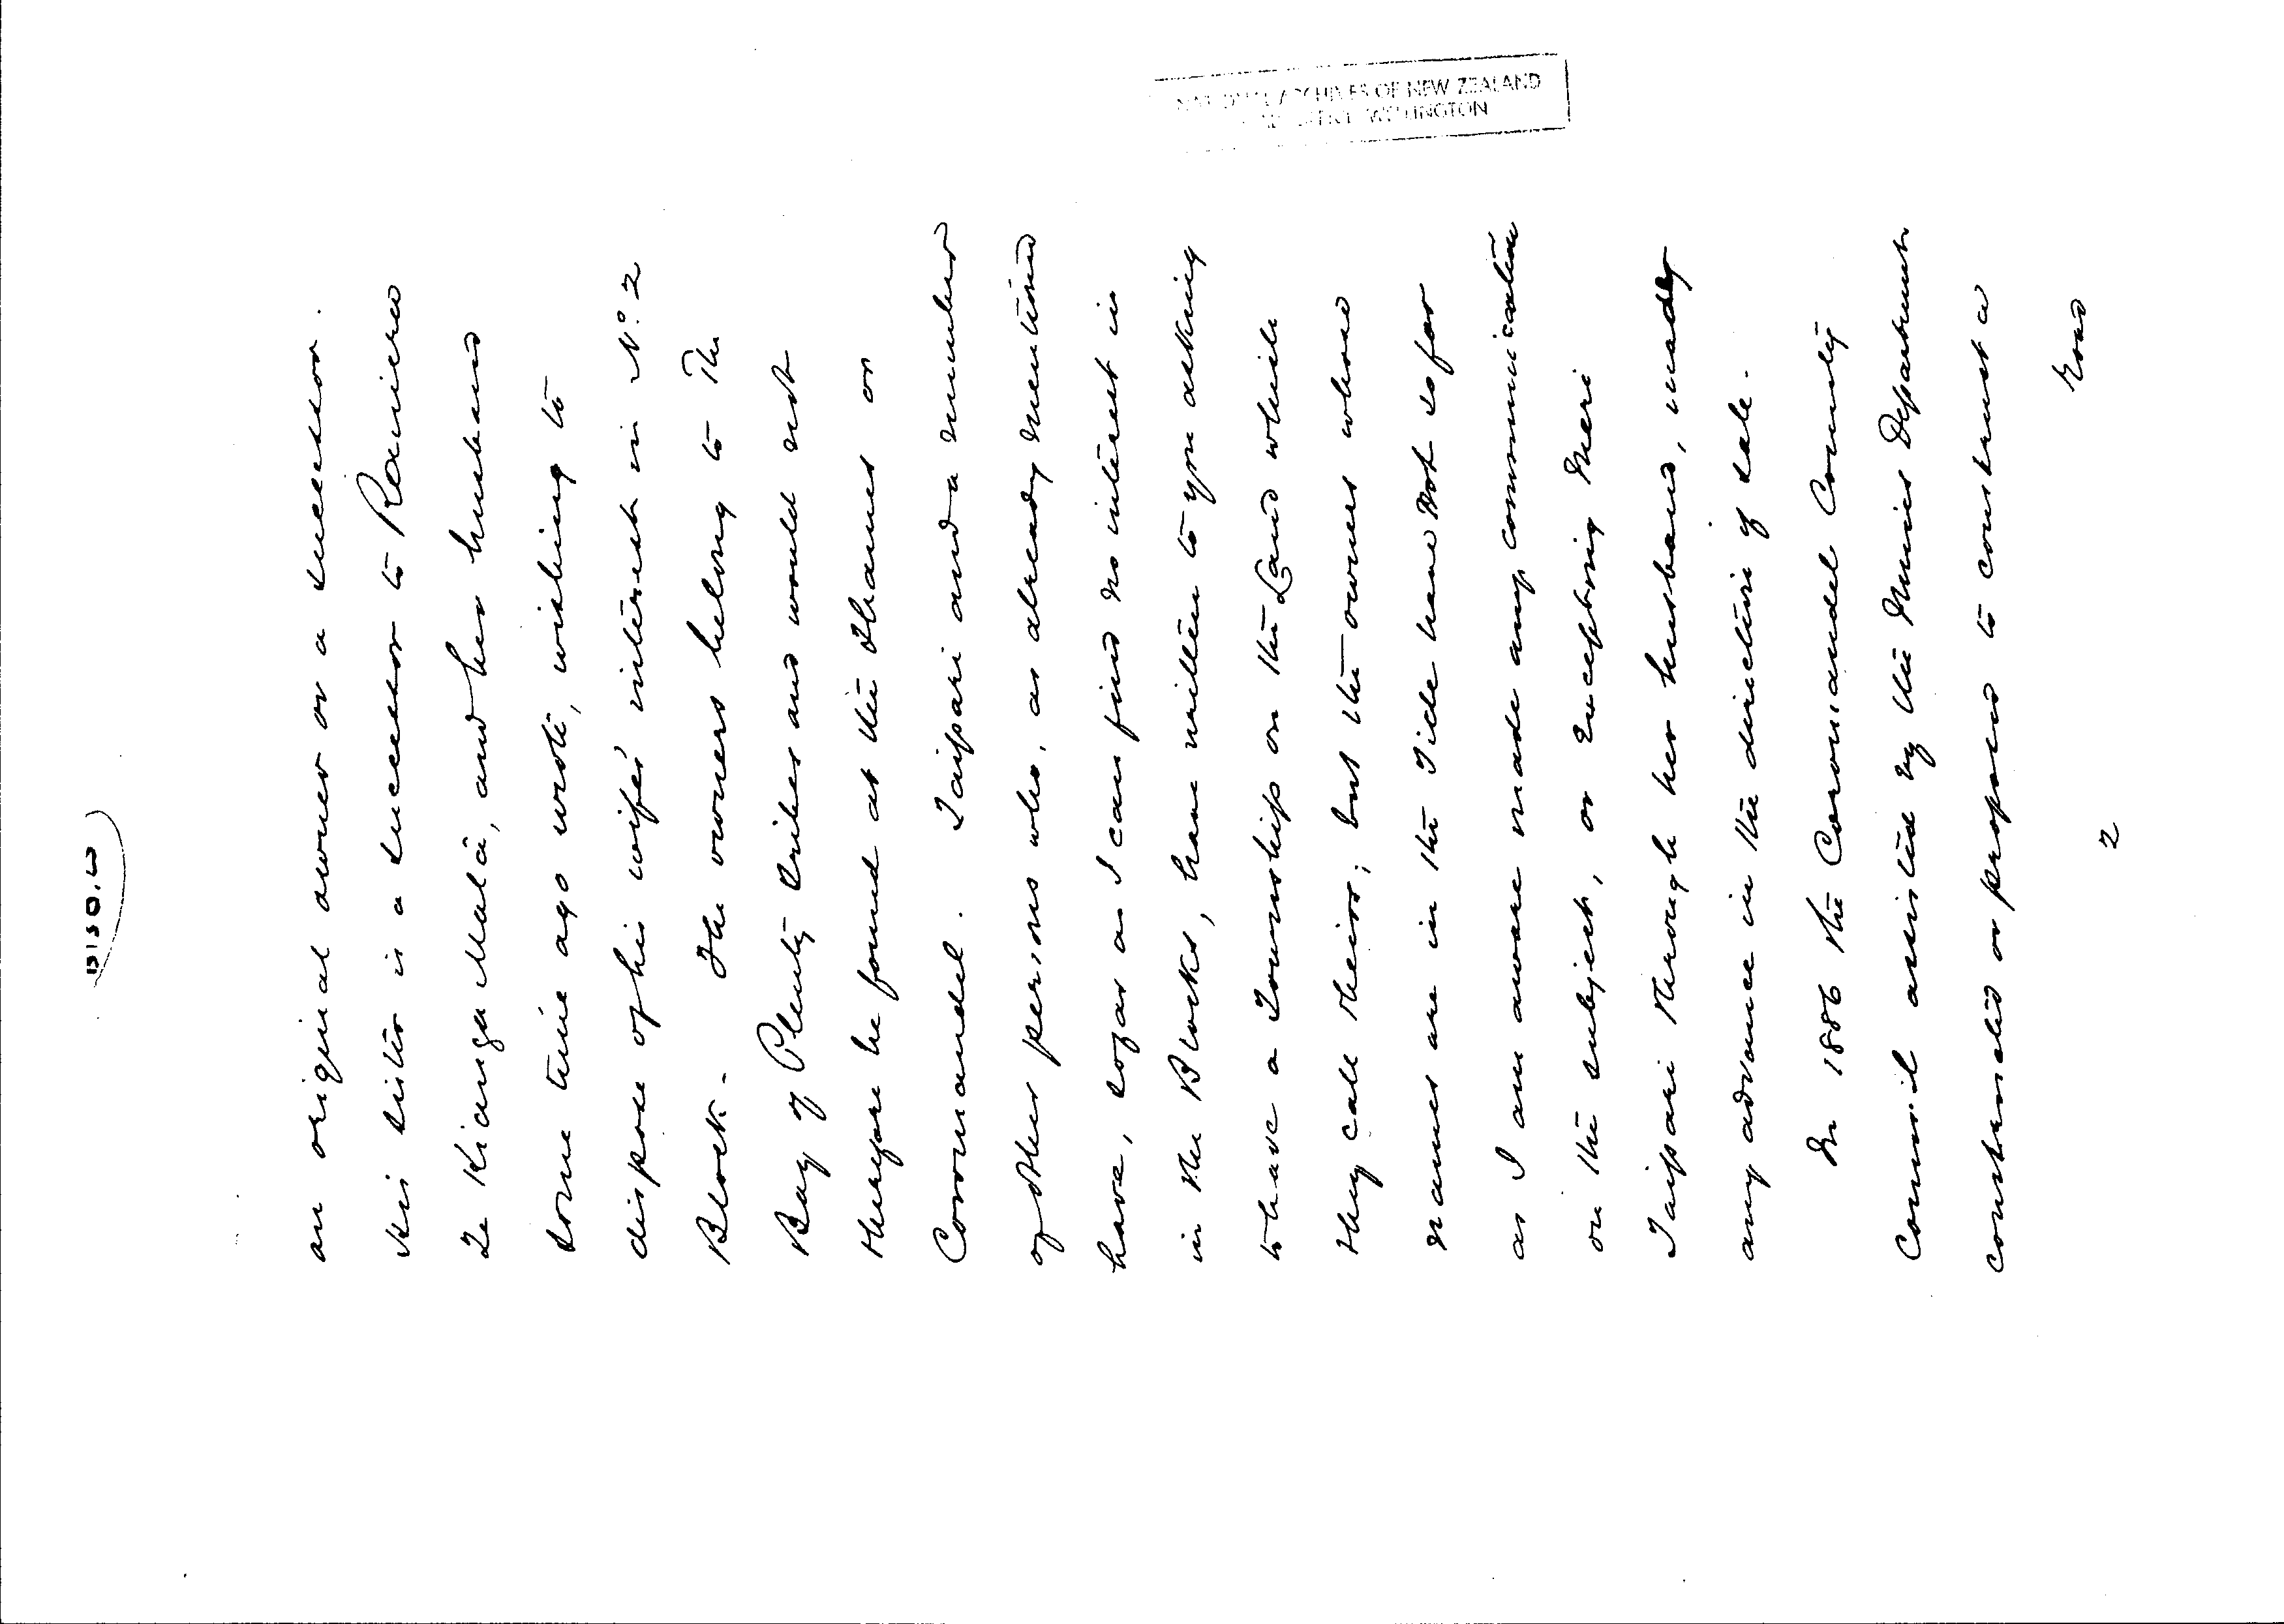 13150.w
NATIONAL ARCHIVES OF NEW ZEALAND
HEAD OFFICE WELLINGTON
an original owner or a successor.
His sister is a successor to Raniera
Te Kianga Mala, and her husband
some time ago wrote, wishing to
dispose of his wife's interest in No. 2
Block. The owners belong to The
Bay of Plenty tribes and would not
therefore be found at the Thames or
Coromandel. Taipari and a number
of other persons who, as already mentioned
have, so far as I can find no interest in
in the Blocks, have written to you asking
to have a Township on the Land which
they call theirs; but the owners whose
names are in the Title have not so far
as I am aware made any communication
on the subject, or excepting Meri
Taipari through her husband, made
any advance in the direction of sale.
In 1886 the Coromandel County
Council assisted by the Mines Department
constructed or proposed to construct a
road
2